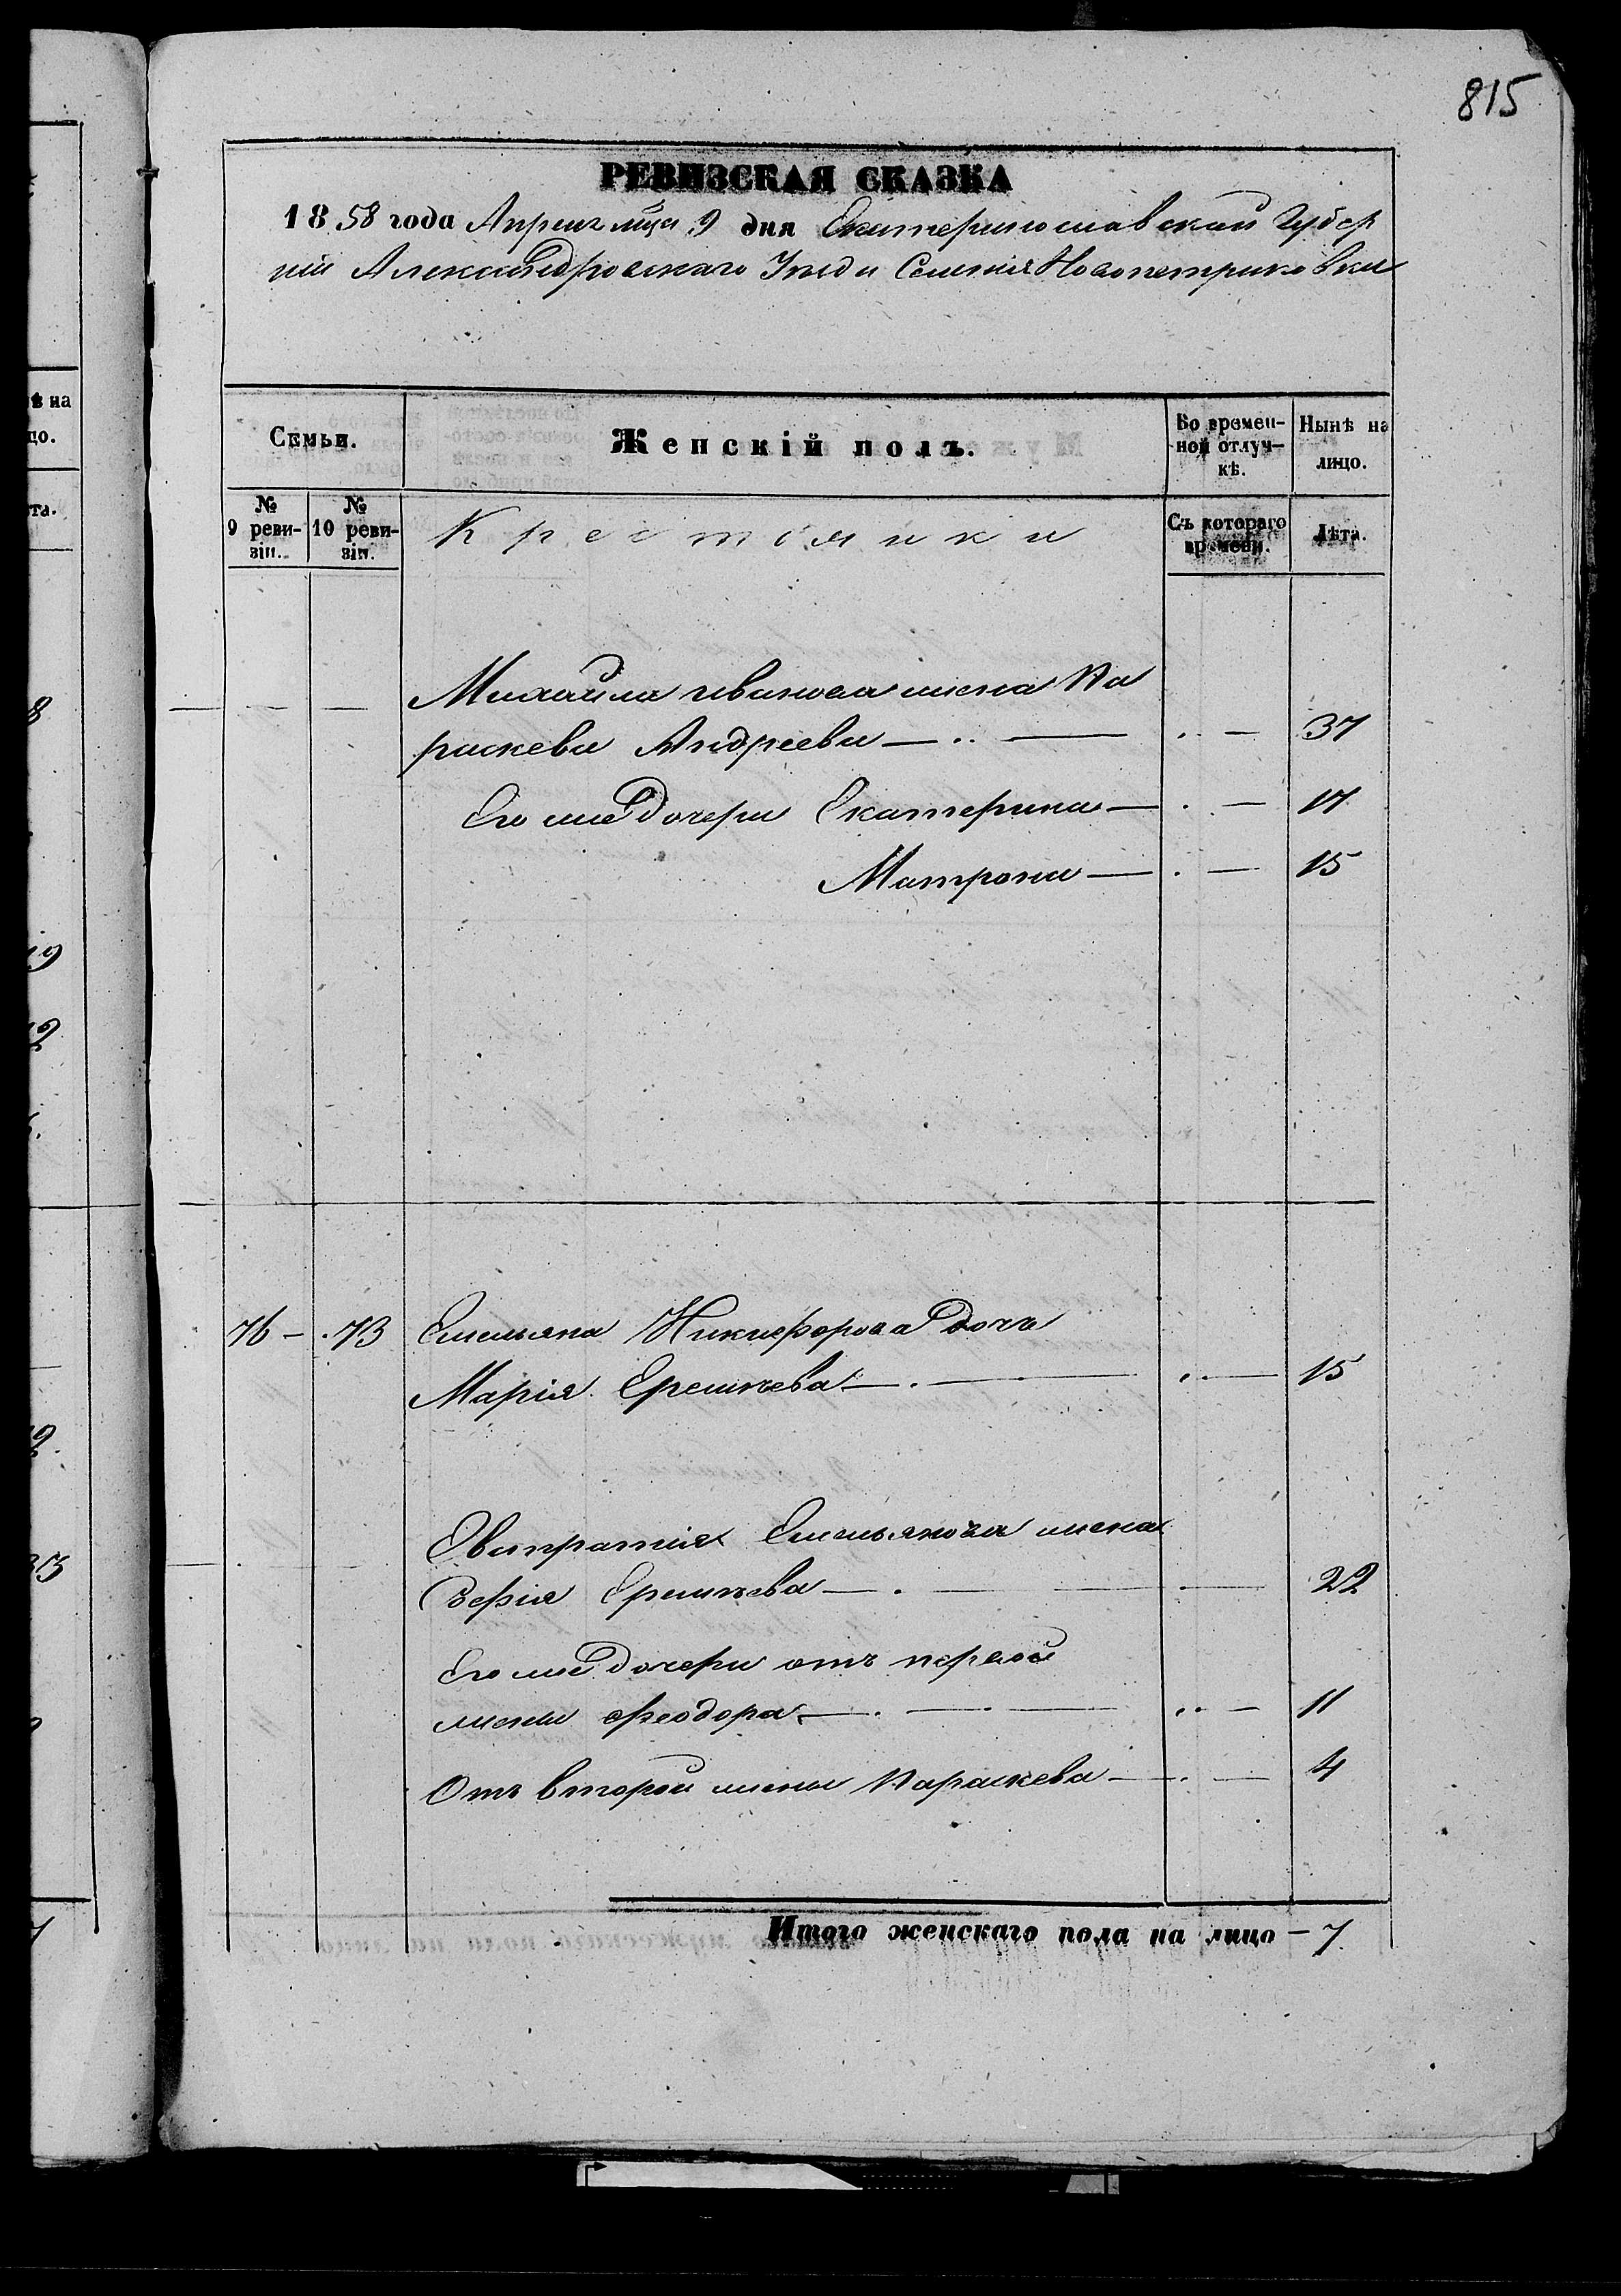 815
РЕВИЗСКАЯ СКАЗКА
1858 года Апреля мца 9 дня Екатеринославской Губер
нiи Александровского Уезда Селенiя Новопетриковки
Семьи.
Женскiй полъ.
Во времен-
ной отлуч-
кѣ.
Нынѣ на
лицо.
№
9 реви-
зiи.
№
10 реви-
зiи.
Крестьянки
Съ котораго
времени.
Лѣта.
Михайла Иванова жена Па
раскева Андреева — 37
Его же дочери Екатерина — 17
Матрона — 15
76 — 73 Емельяна Никифорова дочь
Марiя Еремѣева — 15
Евстратiя Емельянова жена
Еремѣева — 22
Его же дочери отъ первой
жены Феодора — 11
Отъ второй жены Параскева — 4
Итого женскаго пола на лицо — 7
ѣ на
цо.
та.
8
19
12
12
33
7